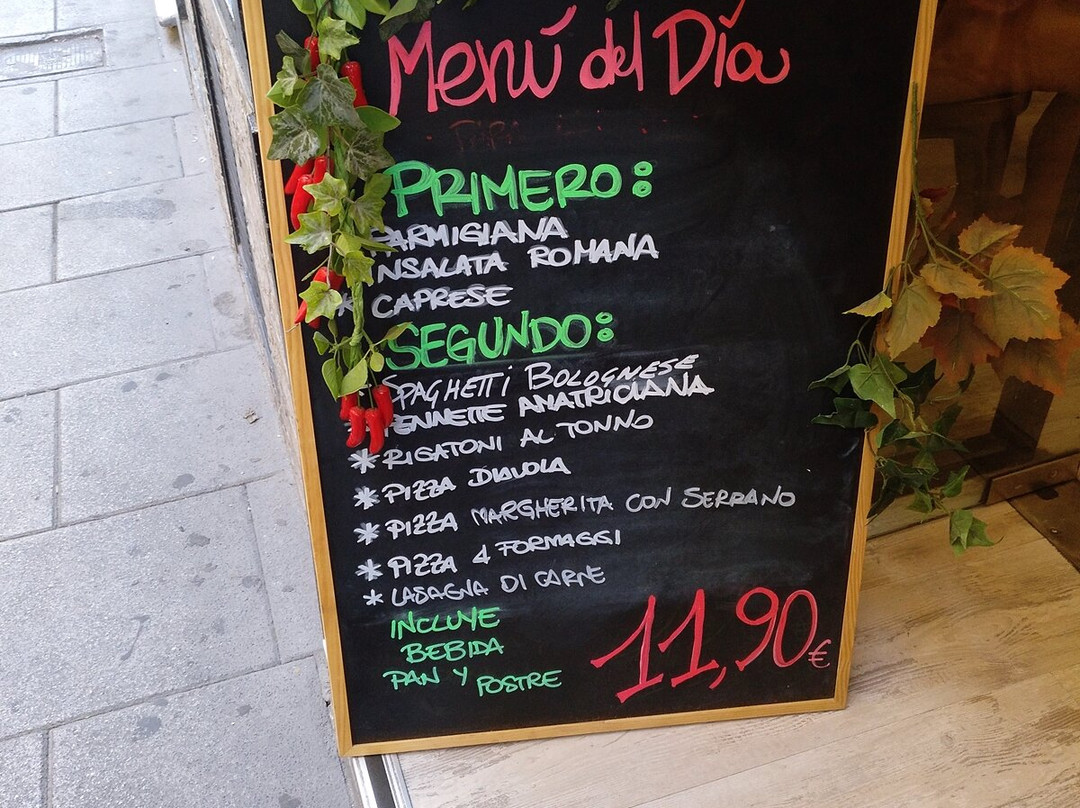 Menú del Día
PRIMERO:
PARMIGIANA
INSALATA ROMANA
* CAPRESE
SEGUNDO:
SPAGHETTI BOLOGNESE
* PENNETTE AMATRICIANA
* RIGATONI AL TONNO
* PIZZA DIAVOLA
* PIZZA MARGHERITA CON SERRANO
* PIZZA 4 FORMAGGI
* LASAGNA DI CARNE
INCLUYE
BEBIDA
PAN Y POSTRE
11,90€